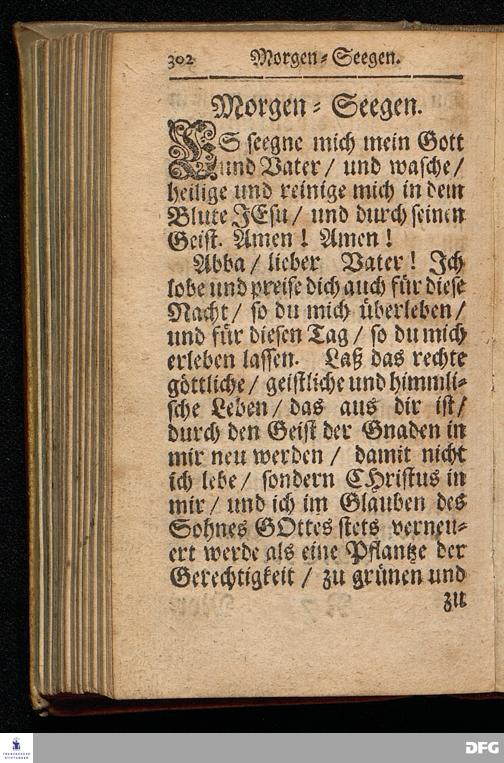 302 Morgen-Seegen.
Morgen-Seegen.
ES seegne mich mein Gott
und Vater/ und wasche/
heilige und reinige mich in dem
Blute JEsu/ und durch seinen
Geist. Amen! Amen!
Abba/ lieber Vater! Ich
lobe und preise dich auch für diese
Nacht/ so du mich überleben/
und für diesen Tag/ so du mich
erleben lassen. Laß das rechte
göttliche/ geistliche und himmli-
sche Leben/ das aus dir ist/
durch den Geist der Gnaden in
mir neu werden/ damit nicht
ich lebe/ sondern CHristus in
mir/ und ich im Glauben des
Sohnes GOttes stets verneu-
ert werde als eine Pflantze der
Gerechtigkeit/ zu grünen und
zu
FRANCKESCHE
STIFTUNGEN
DFG